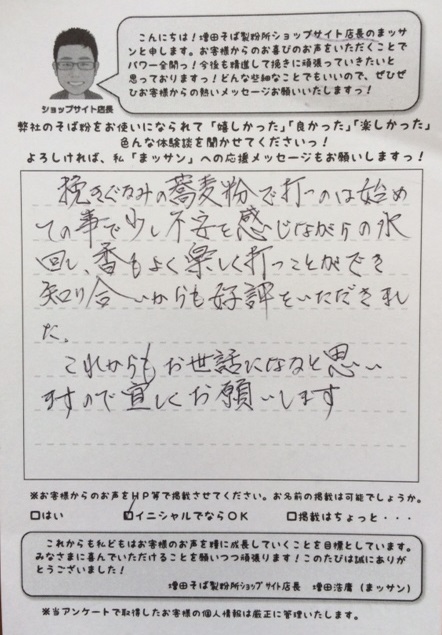 こんにちは！増田そば製粉所ショップサイト店長のマッサ
ンと申します。お客様からのお喜びのお声をいただくことで
パワー全開っ！今後も精進して挽きに頑張っていきたいと
思っております！どんな些細なことでもいいので、ぜひぜ
ひお客様からの熱いメッセージお願いいたしますっ！
ショップサイト店長
弊社のそば粉をお使いになられて「嬉しかった」「良かった」「楽しかった」
色んな体験談を聞かせてくださいっ！
よろしければ、私「マッサン」への応援メッセージもお願いしますっ！
挽きぐるみの蕎麦粉で打つのは始め
ての事で少し不安を感じながらの水
回し、香もよく楽しく打つことができ
知り合いからも好評をいただきまし
た。
これからもお世話になると思い
ますので宜しくお願いします
※お客様からのお声をHP等で掲載させてください。お名前の掲載は可能でしょうか。
□はい
☑イニシャルでならOK
□掲載はちょっと・・・
これからも私どもはお客様のお声を糧に成長していくことを目標としています。
みなさまに喜んでいただけることを願いつつ頑張ります！このたびは誠にありが
とうございました！
増田そば製粉所ショップサイト店長　増田浩庸（マッサン）
※当アンケートで取得したお客様の個人情報は厳正に管理いたします。